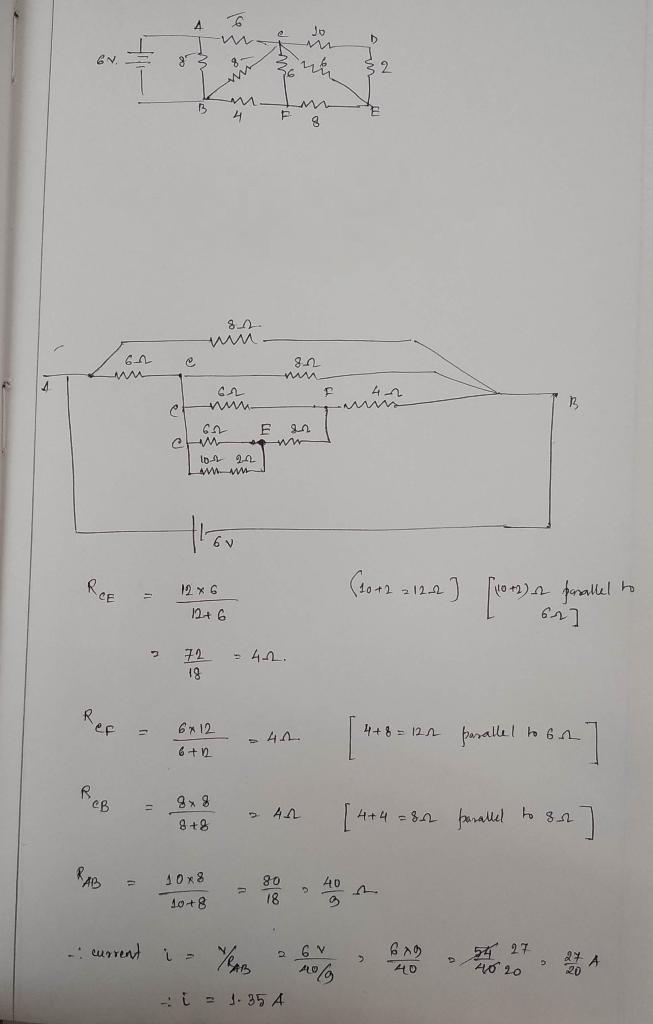 A 6 C 10 D
6V. 8 8 6 6 2
B 4 F 8 E
8Ω
6Ω C 8Ω
A C 6Ω F 4Ω B
C 6Ω E 8Ω
10Ω 2Ω
6V
R_CE = 12 × 6 / 12 + 6 (10 + 2 = 12Ω] [(10+2)Ω parallel to 6Ω]
= 72 / 18 = 4Ω.
R_CF = 6 × 12 / 6 + 12 = 4Ω [4 + 8 = 12Ω parallel to 6Ω]
R_CB = 8 × 8 / 8 + 8 = 4Ω [4 + 4 = 8Ω parallel to 8Ω]
R_AB = 10 × 8 / 10 + 8 = 80 / 18 = 40 / 9 Ω
∴ current i = V/R_AB = 6V / 40/9 = 6×9 / 40 = 54 27 / 40 20 = 27 / 20 A
∴ i = 1.35 A